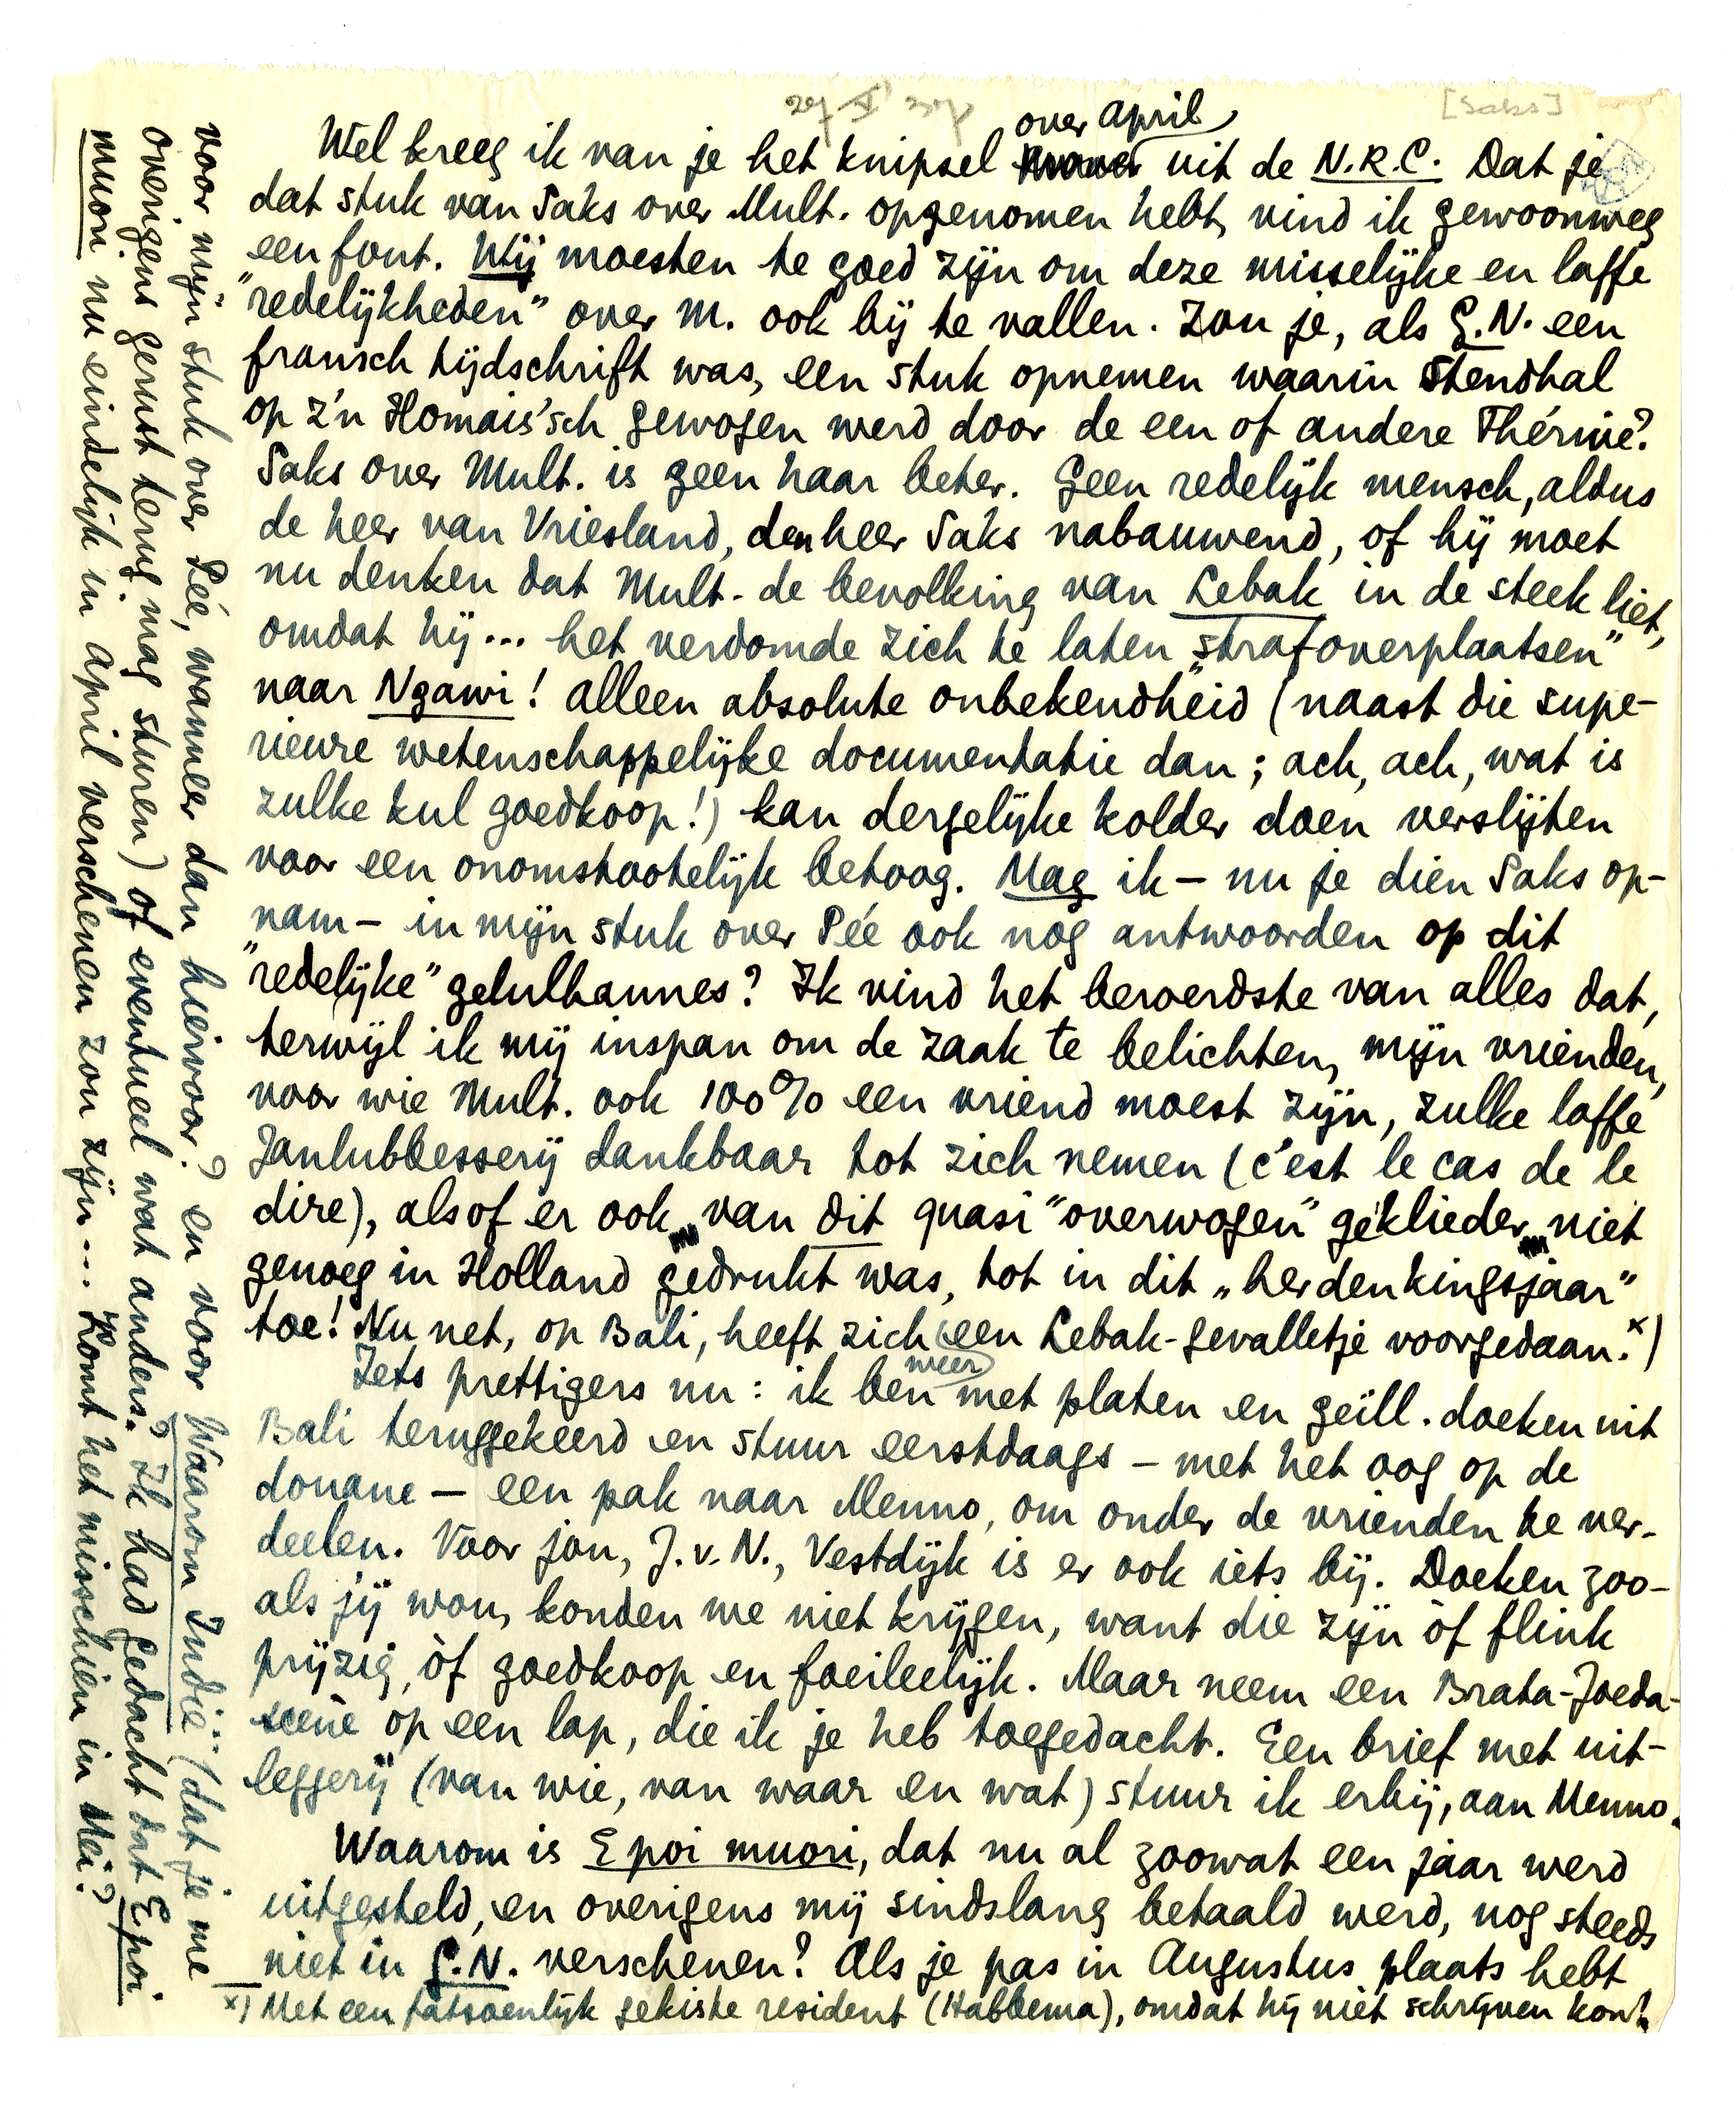 [Saks]
over April
Wel kreeg ik van je het knipsel uit de N.R.C. Dat je
dat stuk van Saks over Mult. opgenomen hebt, vind ik gewoonweg
een fout. Wij moesten te goed zijn om deze misselijke en laffe
"redelijkheden" over M. ook bij te vallen. Zou je, als G.N. een
fransch tijdschrift was, een stuk opnemen waarin Stendhal
op z'n Homais'sch gewogen werd door de een of andere Thérive?
Saks over Mult. is geen haar beter. Geen redelijk mensch, aldus
de heer van Vriesland, den heer Saks nabauwend, of hij moet
nu denken dat Mult. de bevolking van Lebak in de steek liet,
omdat hij... het verdomde zich te laten "strafoverplaatsen"
naar Ngawi! Alleen absolute onbekendheid (naast die supe-
rieure wetenschappelijke documentatie dan; ach, ach, wat is
zulke kul goedkoop!) kan dergelijke kolder doen verslijten
voor een onomstootelijk betoog. Mag ik – nu je dien Saks op-
nam – in mijn stuk over Pée ook nog antwoorden op dit
"redelijke" gelulhannes? Ik vind het beroerdste van alles dat,
terwijl ik mij inspan om de zaak te belichten, mijn vrienden,
voor wie Mult. ook 100% een vriend moest zijn, zulke laffe
Janlubbesserij dankbaar tot zich nemen (c'est le cas de le
dire), alsof er ook van dit quasi "overwogen" geklieder niet
genoeg in Holland gedrukt was, tot in dit "herdenkingsjaar"
toe! Nu net, op Bali, heeft zich een Lebak-gevalletje voorgedaan.x)
Iets prettigers nu: ik ben weer met platen en geïll. doeken uit
Bali teruggekeerd en stuur eerstdaags – met het oog op de
douane – een pak naar Menno, om onder de vrienden te ver-
deelen. Voor jou, J.v.N., Vestdijk is er ook iets bij. Doeken zoo-
als jij wou, konden we niet krijgen, want die zijn òf flink
prijzig, òf goedkoop en foeileelijk. Maar neem een Brata-Joeda-
scène op een lap, die ik je heb toegedacht. Een brief met uit-
leggerij (van wie, van waar en wat) stuur ik erbij, aan Menno.
Waarom is E poi muori, dat nu al zoowat een jaar werd
uitgesteld, en overigens mij sindslang betaald werd, nog steeds
niet in G.N. verschenen? Als je pas in Augustus plaats hebt
x) Met een fatsoenlijk gekiste resident (Habbema), omdat hij niet schrijven kon!
voor mijn stuk over Pée, wanneer dan hiervoor? en voor Waarom Indië? (dat je me
overigens gerust terug mag sturen) of eventueel wat anders? Ik had gedacht dat E poi
muori nu eindelijk in April verschenen zou zijn... Komt het misschien in Mei?